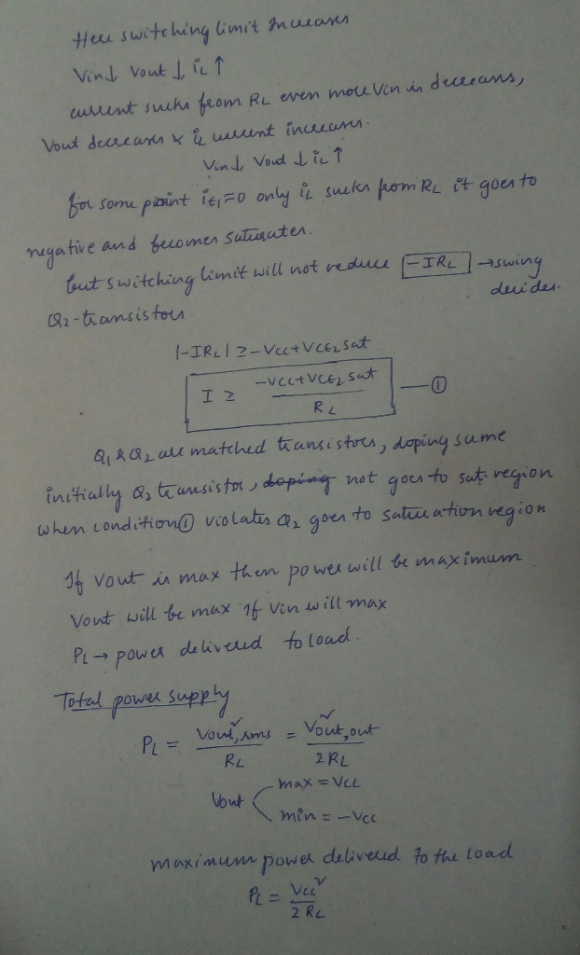 Here switching limit Increases
Vin↓ Vout ↓ iL ↑
current sucks from RL even more Vin is decreases,
Vout decreases & iL current increases.
Vin↓ Vout ↓ iL ↑
for some point iE1=0 only iL sucks from RL it goes to
negative and becomes saturates.
but switching limit will not reduce -IRL → swing
decider.
Q2-transistors
|-IRL| ≥ -Vcc+VCE2sat
I ≥ (-Vcc+VCE2sat)/RL —①
Q1 & Q2 are matched transistors, doping same
initially Q2 transistor, doping not goes to sat. region
when condition① violates Q2 goes to saturation region
If Vout is max then power will be maximum
Vout will be max if Vin will max
PL → power delivered to load.
Total power supply
PL = Vout²,rms/RL = Vout²,out/2RL
Vout < max = Vcc
min = -Vcc
maximum power delivered to the load
PL = Vcc²/2RL